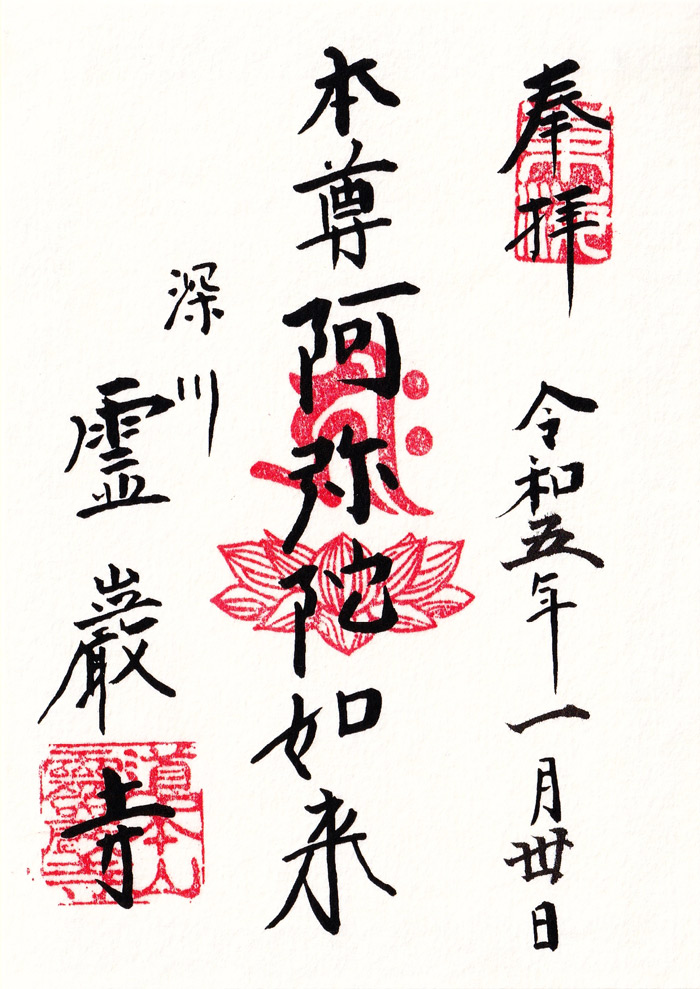 奉拝
令和五年一月丗日
本尊阿弥陀如来
深川
霊巌寺
道本山